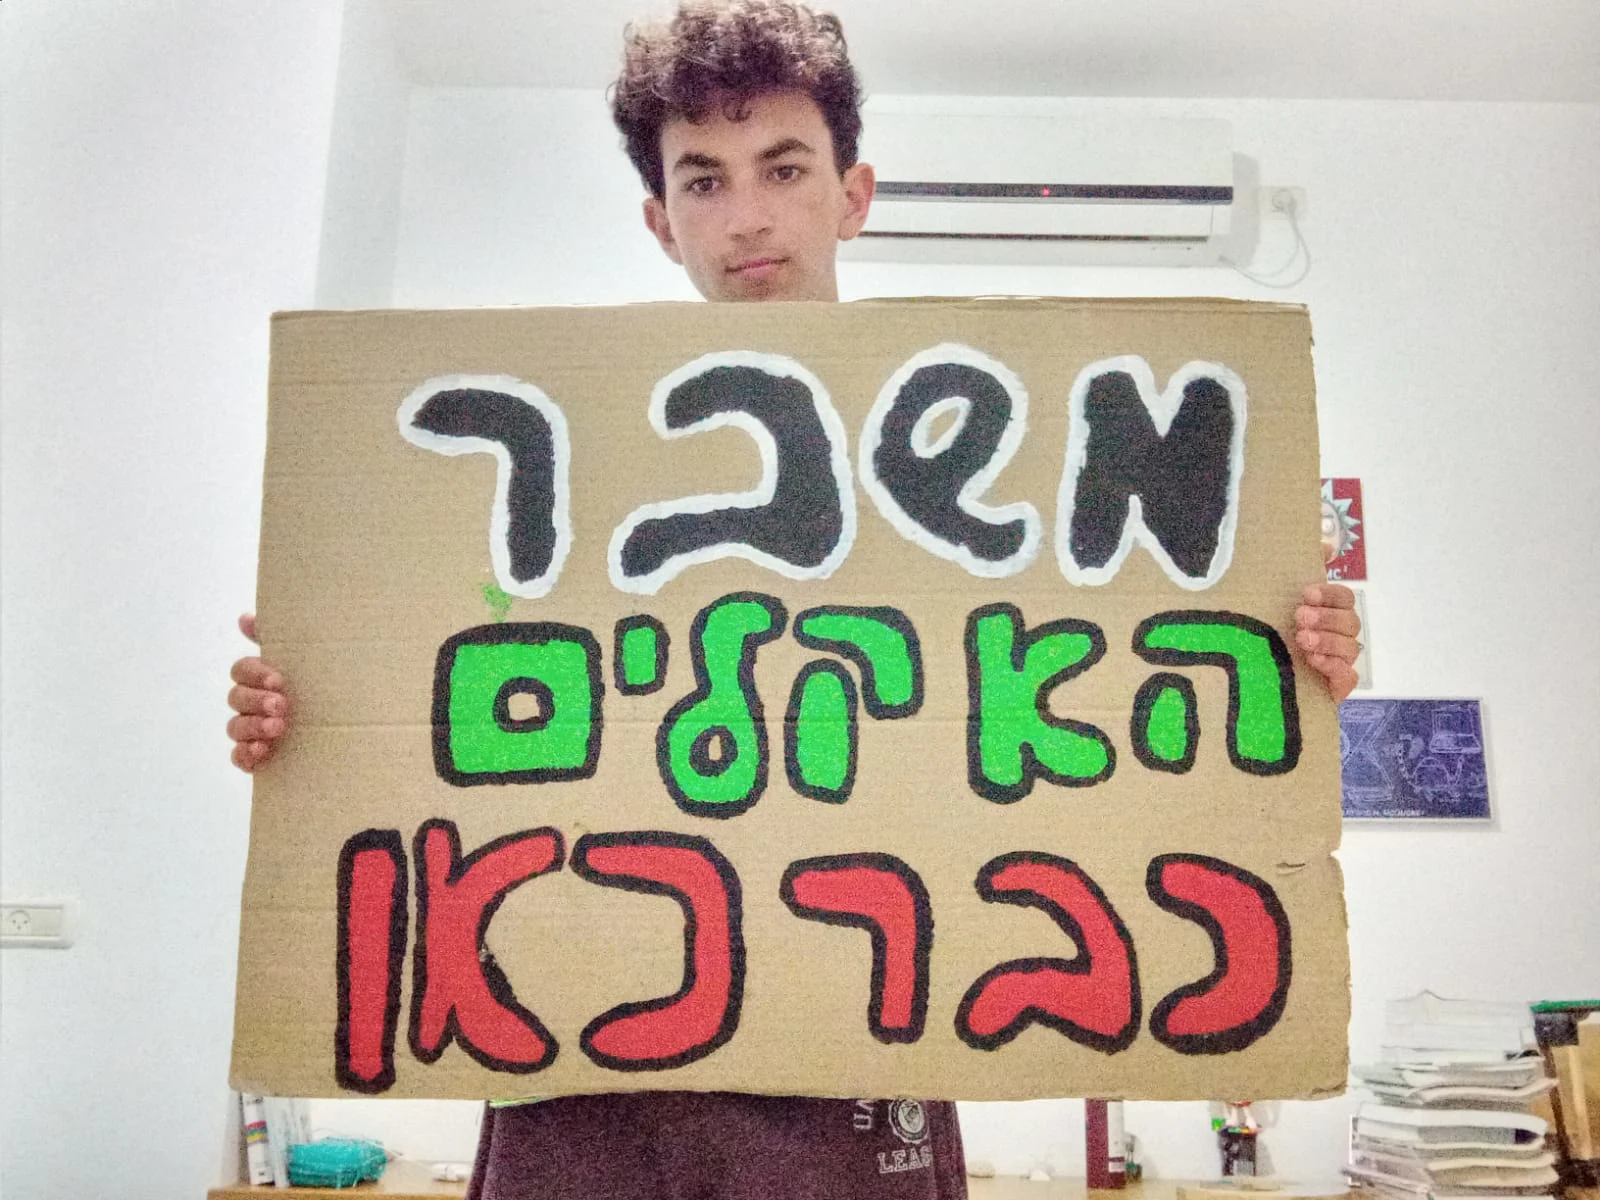 משבר
האקלים
כבר כאן